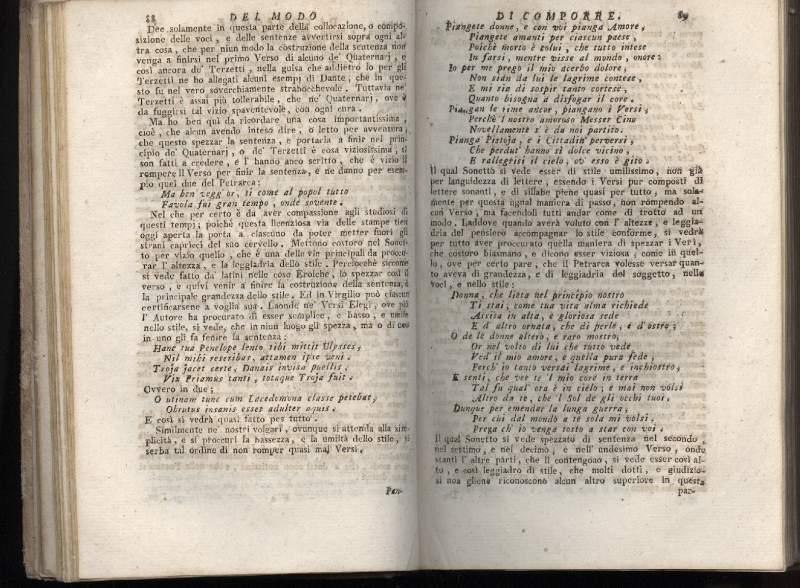 88 DEL MODO
Dee solamente in questa parte della collocazione, o compo-
sizione delle voci, e delle sentenze avvertirsi sopra ogni al-
tra cosa, che per niun modo la costruzione della sentenza non
venga a finirsi nel primo Verso di alcuno de' Quaternarj, e
così ancora de' Terzetti, nella guisa che addietro io per gli
Terzetti ne ho allegati alcuni esempj di Dante; che in que-
sto fu nel vero soverchiamente strabocchevole. Tuttavia ne'
Terzetti è assai più tollerabile, che ne' Quaternarj, ove è
da fuggirsi tal vizio spaventevole, con ogni cura.
Ma ho ben quì da ricordare una cosa importantissima,
cioè, che alcun avendo inteso dire, o letto per avventura,
che questo spezzar la sentenza, e portarla a finir nel prin-
cipio de' Quaternarj, o de' Terzetti è cosa viziosissima, si
son fatti a credere, e l' hanno anco scritto, che è vizio il
rompere il Verso per finir la sentenza, e ne danno per esem-
pio quei due del Petrarca:
Ma ben vegg' or, sì come al popol tutto
Favola fui gran tempo, onde sovente.
Nel che per certo è da aver compassione agli studiosi di
questi tempi; poichè questa licenziosa via delle stampe tien
oggi aperta la porta a ciascuno da poter metter fuori gli
strani capricci del suo cervello. Mettono costoro nel Sonet-
to per vizio quello, che è una delle vie principali da procu-
rar l' altezza, e la leggiadria dello stile. Perciocchè siccome
si vede fatto da' latini nelle cose Eroiche, lo spezzar così il
verso, e quivi venir a finire la costruzione della sentenza, è
la principale grandezza dello stile. Ed in Virgilio può ciascun
certificarsene a voglia sua. Laonde ne' Versi Elegj, ove più
l' Autore ha procurato di esser semplice, e basso, e umile
nello stile, si vede, che in niun luogo gli spezza, ma o di uno
in uno gli fa fenire la sentenza:
Hanc tua Penelope lento tibi mittit Ulysses,
Nil mihi rescribas, attamen ipse veni.
Troja jacet certe, Danais invisa puellis,
Vix Priamus tanti, totaque Troja fuit.
Ovvero in due;
O utinam tunc cum Lacedemona classe petebat,
Obrutus insanis esset adulter aquis.
E così si vedrà quasi fatto per tutto.
Similmente ne' nostri volgari, ovunque si attenda alla sim-
plicità, e si procuri la bassezza, e la umiltà dello stile, si
serba tal ordine di non romper quasi mai Versi.
Pian-
DI COMPORRE. 89
Piangete donne, e con voi pianga Amore,
Piangete amanti per ciascun paese,
Poichè morto è colui, che tutto intese
In farvi, mentre visse al mondo, onore:
Io per me prego il mio acerbo dolore,
Non sian da lui le lagrime contese,
E mi sia di sospir tanto cortese,
Quanto bisogna a disfogar il core.
Piangan le rime ancor, piangano i Versi,
Perchè 'l nostro amoroso Messer Cino
Novellamente s' è da noi partito.
Pianga Pistoja, e i Cittadin perversi,
Che perdut' hanno sì dolce vicino,
E rallegrisi il cielo, ov' esso è gito.
Il qual Sonetto si vede esser di stile umilissimo, non già
per languidezza di lettere, essendo i Versi pur composti di
lettere sonanti, e di sillabe piene quasi per tutto, ma sola-
mente per questa ugual maniera di passo, non rompendo al-
cun Verso, ma facendoli tutti andar come di trotto ad un
modo. Laddove quando averà voluto con l' altezza, e leggia-
dria del pensiero accompagnar lo stile conforme, si vedrà
per tutto aver proccurato quella maniera di spezzar i Versi,
che costoro biasmano, e dicono esser viziosa; come in quel-
lo, ove per certo pare, che il Petrarca volesse versar quan-
to aveva di grandezza, e di leggiadria del soggetto, nelle
voci, e nello stile:
Donna, che lieta nel principio nostro
Ti stai, come tua vita alma richiede
Assisa in alta, e gloriosa sede
E d' altro ornata, che di perle, e d' ostro;
O de le donne altero, e raro mostro,
Or nel volto di lui che tutto vede,
Ved' il mio amore, e quella pura fede,
Perch' io tanto versai lagrime, e inchiostro,
E senti, che ver te 'l mio core in terra
Tal fu qual' ora è in cielo; e mai non volsi
Altro da te, che 'l Sol de gli occhi tuoi.
Dunque per emendar la lunga guerra,
Per cui dal mondo a te sola mi volsi,
Prega ch' io venga tosto a star con voi.
Il qual Sonetto si vede spezzato di sentenza nel secondo,
nel settimo, e nel decimo, e nell' undesimo Verso, onde
stanti l' altre parti, che il contengono, si vede esser così al-
to, e così leggiadro di stile, che molti dotti, e giudizio-
si non gliene riconoscono alcun altro superiore in questa
par-